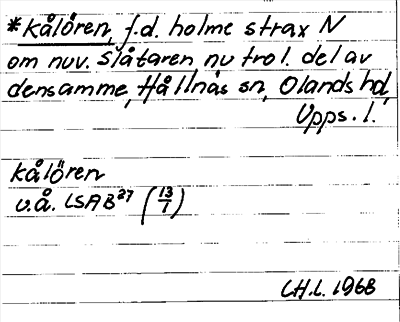 *Kålören, f.d. holme strax N
om nuv. Slåtaren, nu trol. del av
densamme, Hållnäs sn, Olands hd,
Upps. l.
Kålören
u.å. LSAB²⁷ (13/1)
LH.L. 1968